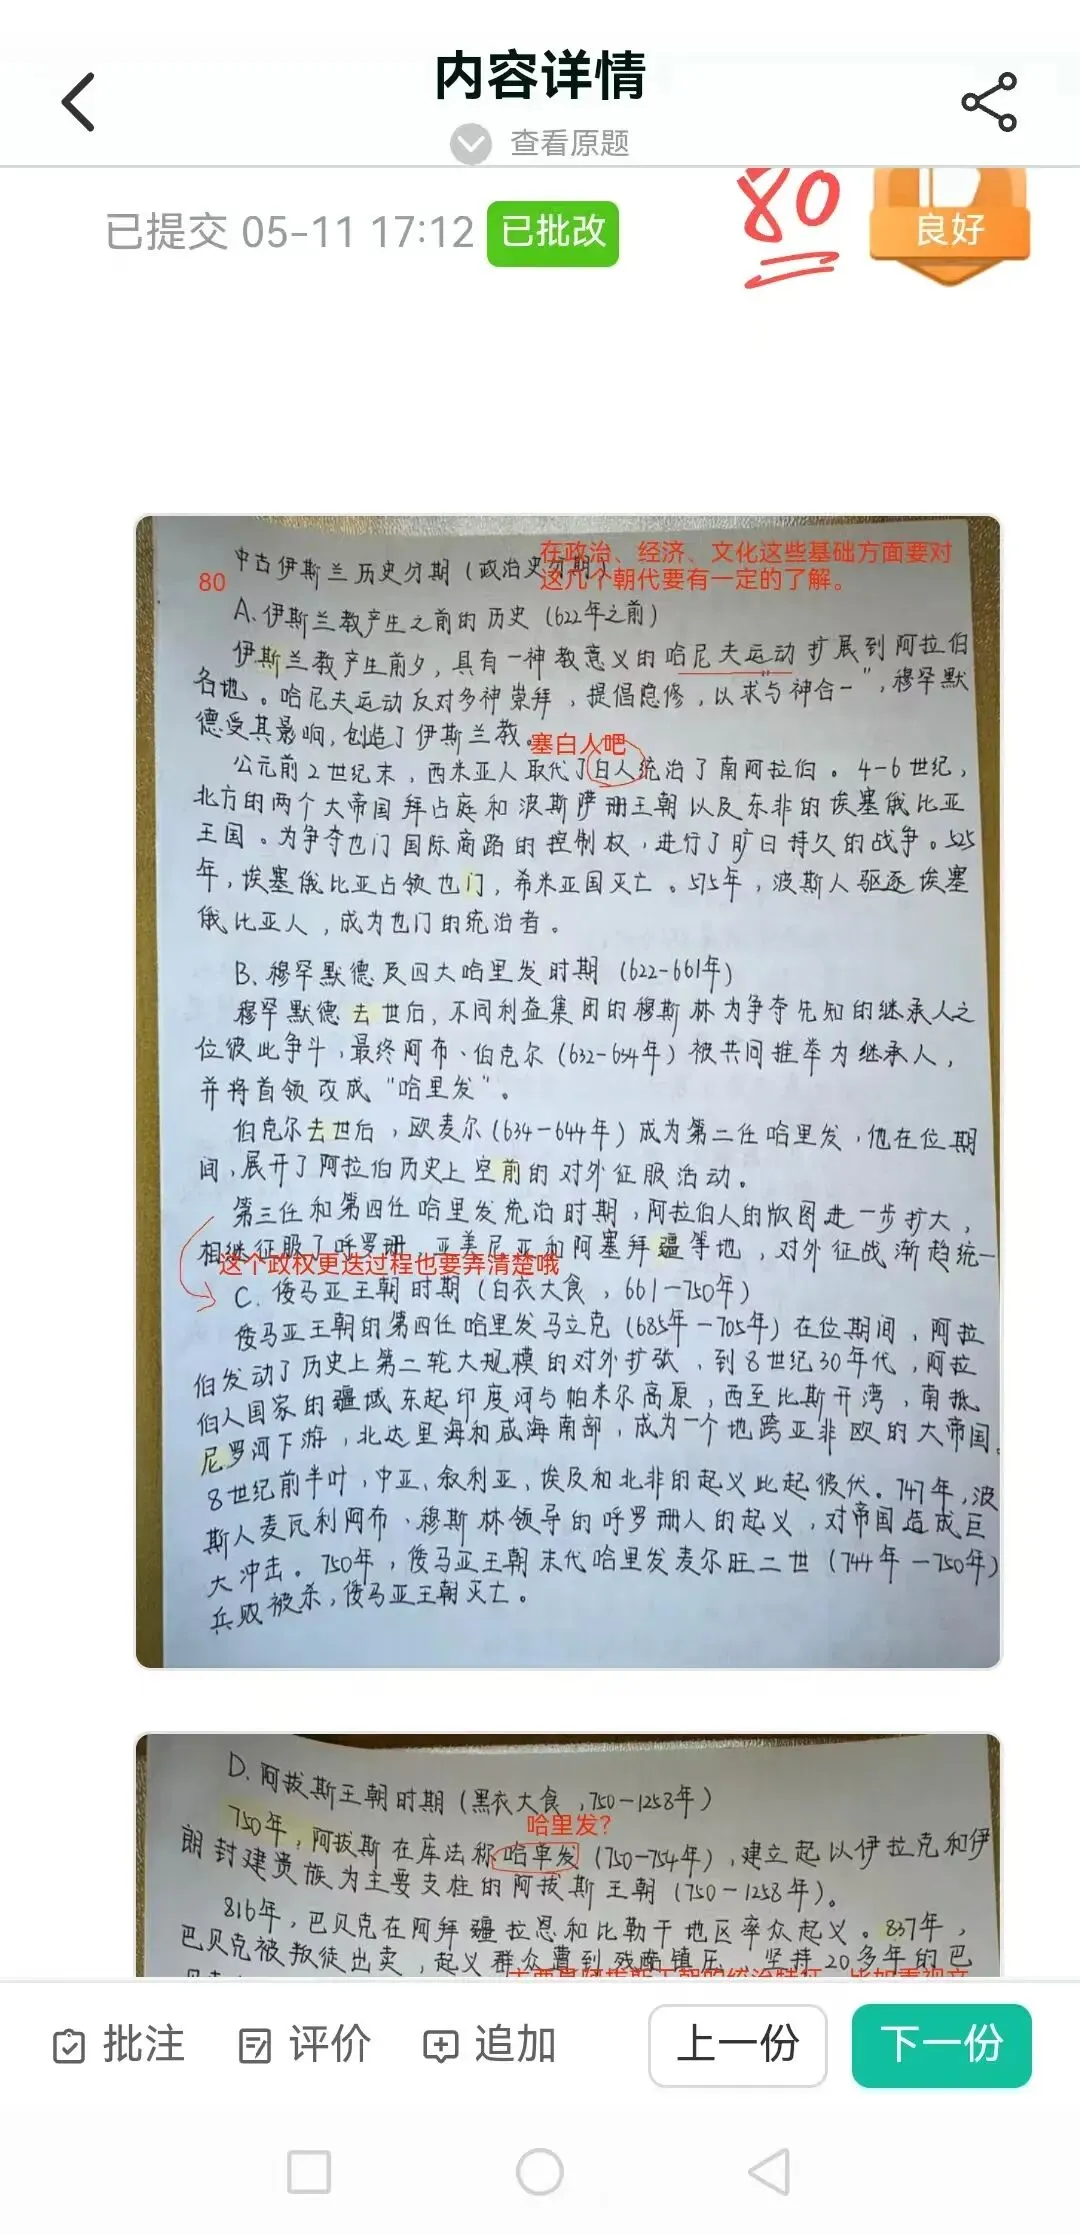 内容详情
查看原题
已提交 05-11 17:12 已批改
80
良好
中古伊斯兰历史分期（政治史分期）
在政治、经济、文化这些基础方面要对
这几个朝代要有一定的了解。
80
A.伊斯兰教产生之前的历史（622年之前）
伊斯兰教产生前夕，具有一神教意义的哈尼夫运动扩展到阿拉伯
各地。哈尼夫运动反对多神崇拜，提倡隐修，以求“与神合一”，穆罕默
德受其影响，创造了伊斯兰教。
塞白人吧
公元前2世纪末，西米亚人取代了白人统治了南阿拉伯。4-6世纪，
北方的两个大帝国拜占庭和波斯萨珊王朝以及东非的埃塞俄比亚
王国。为争夺也门国际商路的控制权，进行了旷日持久的战争。525
年，埃塞俄比亚占领也门，希米亚国灭亡。575年，波斯人驱逐埃塞
俄比亚人，成为也门的统治者。
B.穆罕默德及四大哈里发时期（622-661年）
穆罕默德去世后，不同利益集团的穆斯林为争夺先知的继承人之
位彼此争斗，最终阿布、伯克尔（632-634年）被共同推举为继承人，
并将首领改成“哈里发”。
伯克尔去世后，欧麦尔（634-644年）成为第二任哈里发，他在位期
间，展开了阿拉伯历史上空前的对外征服活动。
第三任和第四任哈里发统治时期，阿拉伯人的版图进一步扩大，
相继征服了呼罗珊、亚美尼亚和阿塞拜疆等地，对外征战渐趋统一
这个政权更迭过程也要弄清楚哦
C.倭马亚王朝时期（白衣大食，661-750年）
倭马亚王朝的第四任哈里发马立克（685年-705年）在位期间，阿拉
伯发动了历史上第二轮大规模的对外扩张，到8世纪30年代，阿拉
伯人国家的疆域东起印度河与帕米尔高原，西至比斯开湾，南抵
尼罗河下游，北达里海和咸海南部，成为一个地跨亚非欧的大帝国。
8世纪前半叶，中亚、叙利亚、埃及和北非的起义此起彼伏。747年，波
斯人麦瓦利阿布、穆斯林领导的呼罗珊人的起义，对帝国造成巨
大冲击。750年，倭马亚王朝末代哈里发麦尔旺二世（744年-750年）
兵败被杀，倭马亚王朝灭亡。
D.阿拔斯王朝时期（黑衣大食，750-1258年）
哈里发？
750年，阿拔斯在库法称哈单发（750-754年），建立起以伊拉克和伊
朗封建贵族为主要支柱的阿拔斯王朝（750-1258年）。
816年，巴贝克在阿拜疆拉恩和比勒干地区率众起义。837年，
巴贝克被叛徒出卖，起义群众遭到残酷镇压。坚持20多年的巴
批注 评价 追加 上一份 下一份